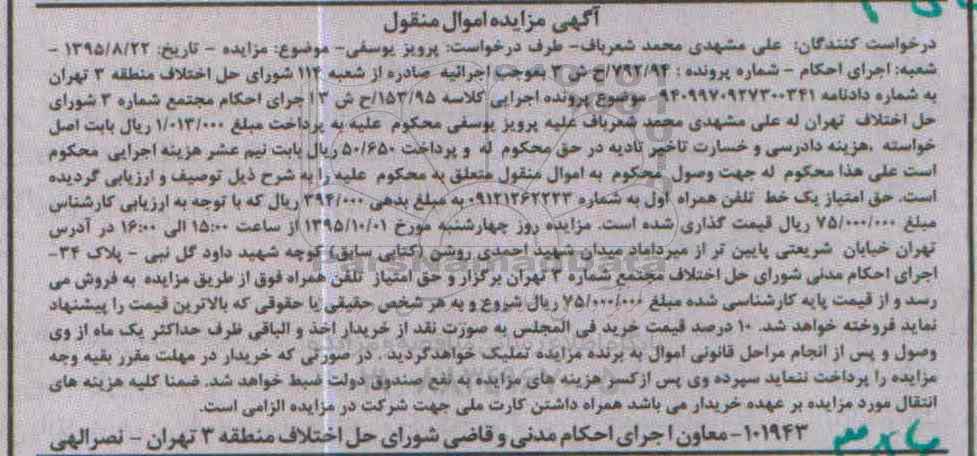 آگهی مزایده اموال منقول
درخواست کنندگان: علی مشهدی محمد شعرباف- طرف درخواست: پرویز یوسفی- موضوع: مزایده - تاریخ: ۱۳۹۵/۸/۲۲ -
شعبه: اجرای احکام - شماره پرونده : ۷۹۲/۹۴/ح ش ۳ بموجب اجرائیه صادره از شعبه ۱۱۲ شورای حل اختلاف منطقه ۳ تهران
به شماره دادنامه ۹۴۰۹۹۷۰۹۲۷۳۰۰۳۴۱ موضوع پرونده اجرایی کلاسه ۱۵۳/۹۵/ح ش ۳ اجرای احکام مجتمع شماره ۳ شورای
حل اختلاف تهران له علی مشهدی محمد شعرباف علیه پرویز یوسفی محکوم علیه به پرداخت مبلغ ۱/۰۱۳/۰۰۰ ریال بابت اصل
خواسته ،هزینه دادرسی و خسارت تاخیر تادیه در حق محکوم له و پرداخت ۵۰/۶۵۰ ریال بابت نیم عشر هزینه اجرایی محکوم
است علی هذا محکوم له جهت وصول محکوم به اموال منقول متعلق به محکوم علیه را به شرح ذیل توصیف و ارزیابی گردیده
است. حق امتیاز یک خط تلفن همراه اول به شماره ۰۹۱۲۱۲۶۲۲۲۳ به مبلغ بدهی ۳۹۴/۰۰۰ ریال که با توجه به ارزیابی کارشناس
مبلغ ۷۵/۰۰۰/۰۰۰ ریال قیمت گذاری شده است. مزایده روز چهارشنبه مورخ ۱۳۹۵/۱۰/۰۱ از ساعت ۱۵:۰۰ الی ۱۶:۰۰ در آدرس
تهران خیابان شریعتی پایین تر از میرداماد میدان شهید احمدی روشن (کتابی سابق) کوچه شهید داود گل نبی - پلاک ۳۴-
اجرای احکام مدنی شورای حل اختلاف مجتمع شماره ۳ تهران برگزار و حق امتیاز تلفن همراه فوق از طریق مزایده به فروش می
رسد و از قیمت پایه کارشناسی شده مبلغ ۷۵/۰۰۰/۰۰۰ ریال شروع و به هر شخص حقیقی یا حقوقی که بالاترین قیمت را پیشنهاد
نماید فروخته خواهد شد. ۱۰ درصد قیمت خرید فی المجلس به صورت نقد از خریدار اخذ و الباقی ظرف حداکثر یک ماه از وی
وصول و پس از انجام مراحل قانونی اموال به برنده مزایده تملیک خواهدگردید . در صورتی که خریدار در مهلت مقرر بقیه وجه
مزایده را پرداخت ننماید سپرده وی پس ازکسر هزینه های مزایده به نفع صندوق دولت ضبط خواهد شد. ضمنا کلیه هزینه های
انتقال مورد مزایده بر عهده خریدار می باشد همراه داشتن کارت ملی جهت شرکت در مزایده الزامی است.
۱۰۱۹۴۳- معاون اجرای احکام مدنی و قاضی شورای حل اختلاف منطقه ۳ تهران - نصرالهی